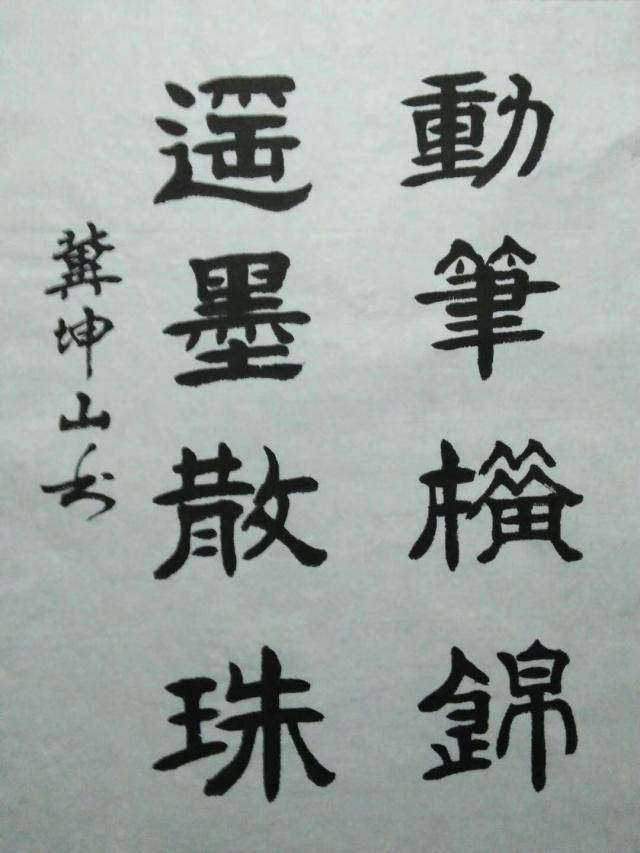 動筆橫錦
遥墨散珠
坤山书